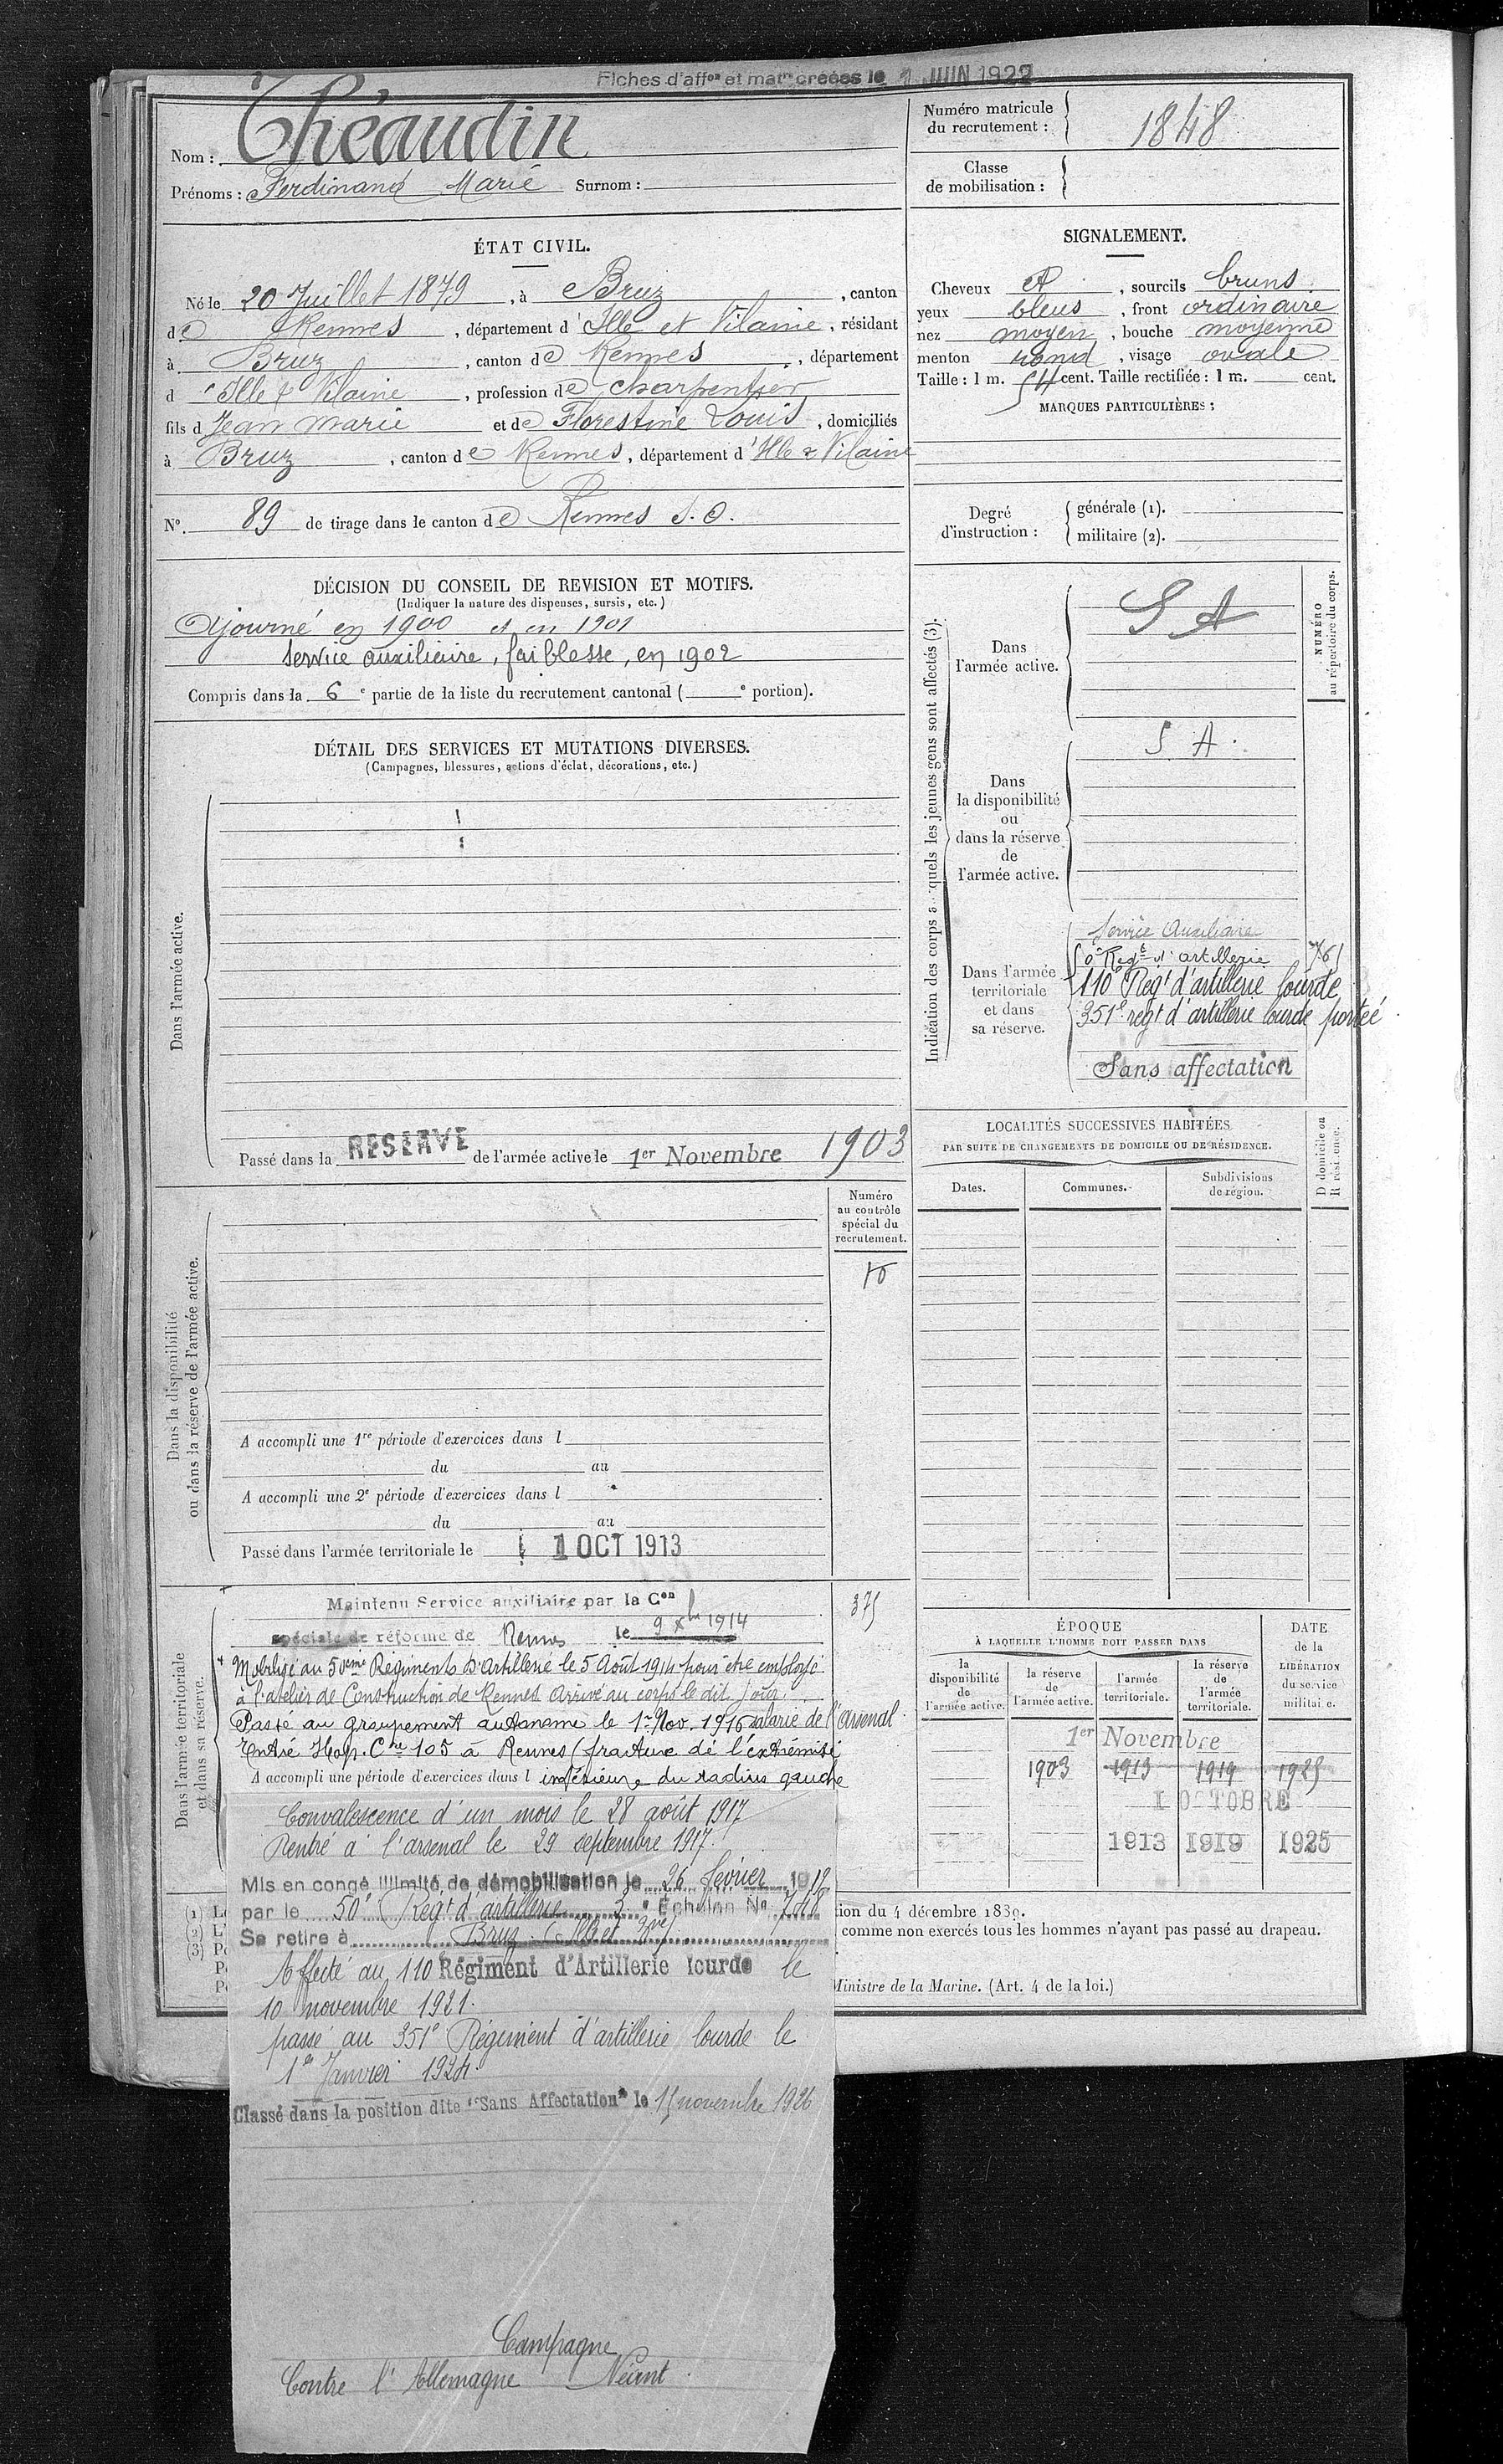 Fiches d'affon et matr créées le 1 JUIN 1922
Nom : Théaudin
Prénoms : Ferdinand Marie Surnom :
Numéro matricule du recrutement : 1848
Classe de mobilisation :
ÉTAT CIVIL.
Né le 20 Juillet 1879, à Bruz, canton
de Rennes, département d'Ille et Vilaine, résidant
à Bruz, canton de Rennes, département
d'Ille & Vilaine, profession de charpentier
fils d Jean Marie et de Florestine Louis, domiciliés
à Bruz, canton de Rennes, département d'Ille & Vilaine
N° 89 de tirage dans le canton de Rennes S. O.
SIGNALEMENT.
Cheveux et, sourcils bruns
yeux bleus, front ordinaire
nez moyen, bouche moyenne
menton rond, visage ovale
Taille : 1 m. 54 cent. Taille rectifiée : 1 m. cent.
MARQUES PARTICULIÈRES :
Degré d'instruction :
générale (1).
militaire (2).
DÉCISION DU CONSEIL DE REVISION ET MOTIFS.
(Indiquer la nature des dispenses, sursis, etc.)
Ajourné en 1900 et en 1901
Service auxiliaire, faiblesse, en 1902
Compris dans la 6e partie de la liste du recrutement cantonal ( e portion).
DÉTAIL DES SERVICES ET MUTATIONS DIVERSES.
(Campagnes, blessures, actions d'éclat, décorations, etc.)
Dans l'armée active.
Passé dans la RESERVE de l'armée active le 1er Novembre 1903
Indication des corps auxquels les jeunes gens sont affectés (3).
NUMÉRO au répertoire du corps.
Dans l'armée active.
S A
Dans la disponibilité ou dans la réserve de l'armée active.
S A.
Dans l'armée territoriale et dans sa réserve.
Service Auxiliaire
50e Regt d'artillerie 761
110e Regt d'artillerie lourde
351e regt d'artillerie lourde portée
Sans affectation
LOCALITÉS SUCCESSIVES HABITÉES
PAR SUITE DE CHANGEMENTS DE DOMICILE OU DE RÉSIDENCE.
Dates. Communes. Subdivisions de région. D domicile ou R résidence.
Dans la disponibilité ou dans la réserve de l'armée active.
Numéro au contrôle spécial du recrutement.
A accompli une 1re période d'exercices dans l
du au
A accompli une 2e période d'exercices dans l
du au
Passé dans l'armée territoriale le 1 OCT 1913
Dans l'armée territoriale et dans sa réserve.
Maintenu Service auxiliaire par la Con 375
spéciale de réforme de Rennes le 9 Xbre 1914
Mobilisé au 50eme Régiment d'Artillerie le 5 Août 1914 pour être employé
à l'atelier de Construction de Rennes Arrivé au corps le dit jour.
Passé au groupement autonome le 1er Nov. 1916 salarié de l'arsenal.
Entré Hop. Cre 105 à Rennes (fracture de l'extrémité
A accompli une période d'exercices dans l inférieure du radius gauche
Convalescence d'un mois le 28 août 1917
Rentré à l'arsenal le 29 septembre 1917.
Mis en congé illimité de démobilisation le 26 février 1919
par le 50e Regt d'artillerie 3e Echelon No
Se retire à Bruz (Ille et Vve)
Affecté au 110 Régiment d'Artillerie lourde le
10 novembre 1921.
passé au 351e Régiment d'artillerie lourde le
1er Janvier 1924.
Classé dans la position dite "Sans Affectation" le 15 novembre 1926
Campagne
Contre l'Allemagne Néant.
ÉPOQUE
À LAQUELLE L'HOMME DOIT PASSER DANS
la disponibilité de l'armée active. la réserve de l'armée active. l'armée territoriale. la réserve de l'armée territoriale.
DATE de la LIBÉRATION du service militaire.
1er Novembre
1903 1913 1919 1925
1 OCTOBRE
1913 1919 1925
tion du 4 décembre 1889.
comme non exercés tous les hommes n'ayant pas passé au drapeau.
Ministre de la Marine. (Art. 4 de la loi.)